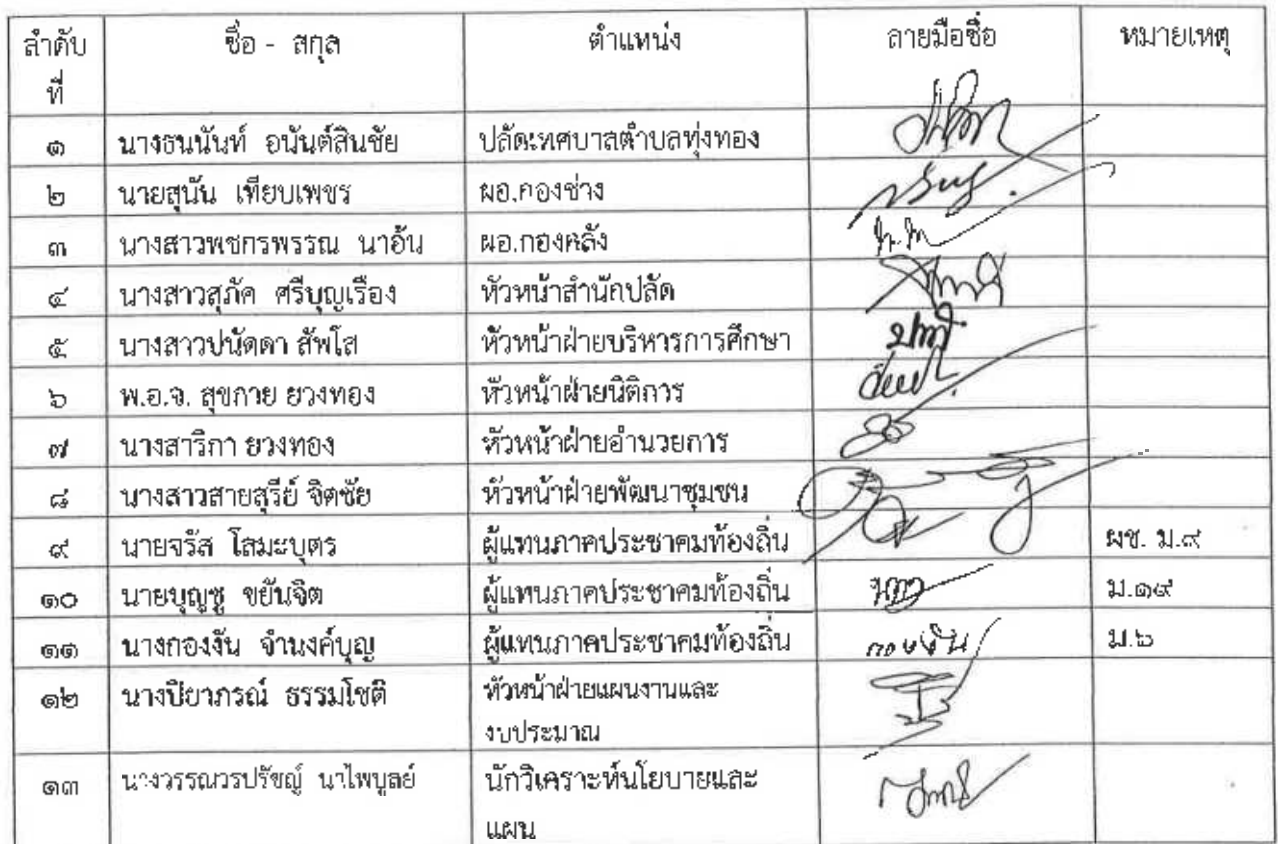 ลำดับ ชื่อ - สกุล ตำแหน่ง ลายมือชื่อ หมายเหตุ
ที่
๑ นางธนนันท์ อนันต์สินชัย ปลัดเทศบาลตำบลทุ่งทอง
๒ นายสุนัน เทียบเพชร ผอ.กองช่าง
๓ นางสาวพชกรพรรณ นาอ้น ผอ.กองคลัง
๔ นางสาวสุภัค ศรีบุญเรือง หัวหน้าสำนักปลัด
๕ นางสาวปนัดดา สัพโส หัวหน้าฝ่ายบริหารการศึกษา
๖ พ.อ.จ. สุขกาย ยวงทอง หัวหน้าฝ่ายนิติการ
๗ นางสาริกา ยวงทอง หัวหน้าฝ่ายอำนวยการ
๘ นางสาวสายสุรีย์ จิตชัย หัวหน้าฝ่ายพัฒนาชุมชน
๙ นายจรัส โสมะบุตร ผู้แทนภาคประชาคมท้องถิ่น ผช. ม.๙
๑๐ นายบุญชู ขยันจิต ผู้แทนภาคประชาคมท้องถิ่น ม.๑๙
๑๑ นางกองงัน จำนงค์บุญ ผู้แทนภาคประชาคมท้องถิ่น กองงัน ม.๖
๑๒ นางปิยาภรณ์ ธรรมโชติ หัวหน้าฝ่ายแผนงานและ
งบประมาณ
๑๓ นางวรรณวรปรัชญ์ นาไพบูลย์ นักวิเคราะห์นโยบายและ
แผน